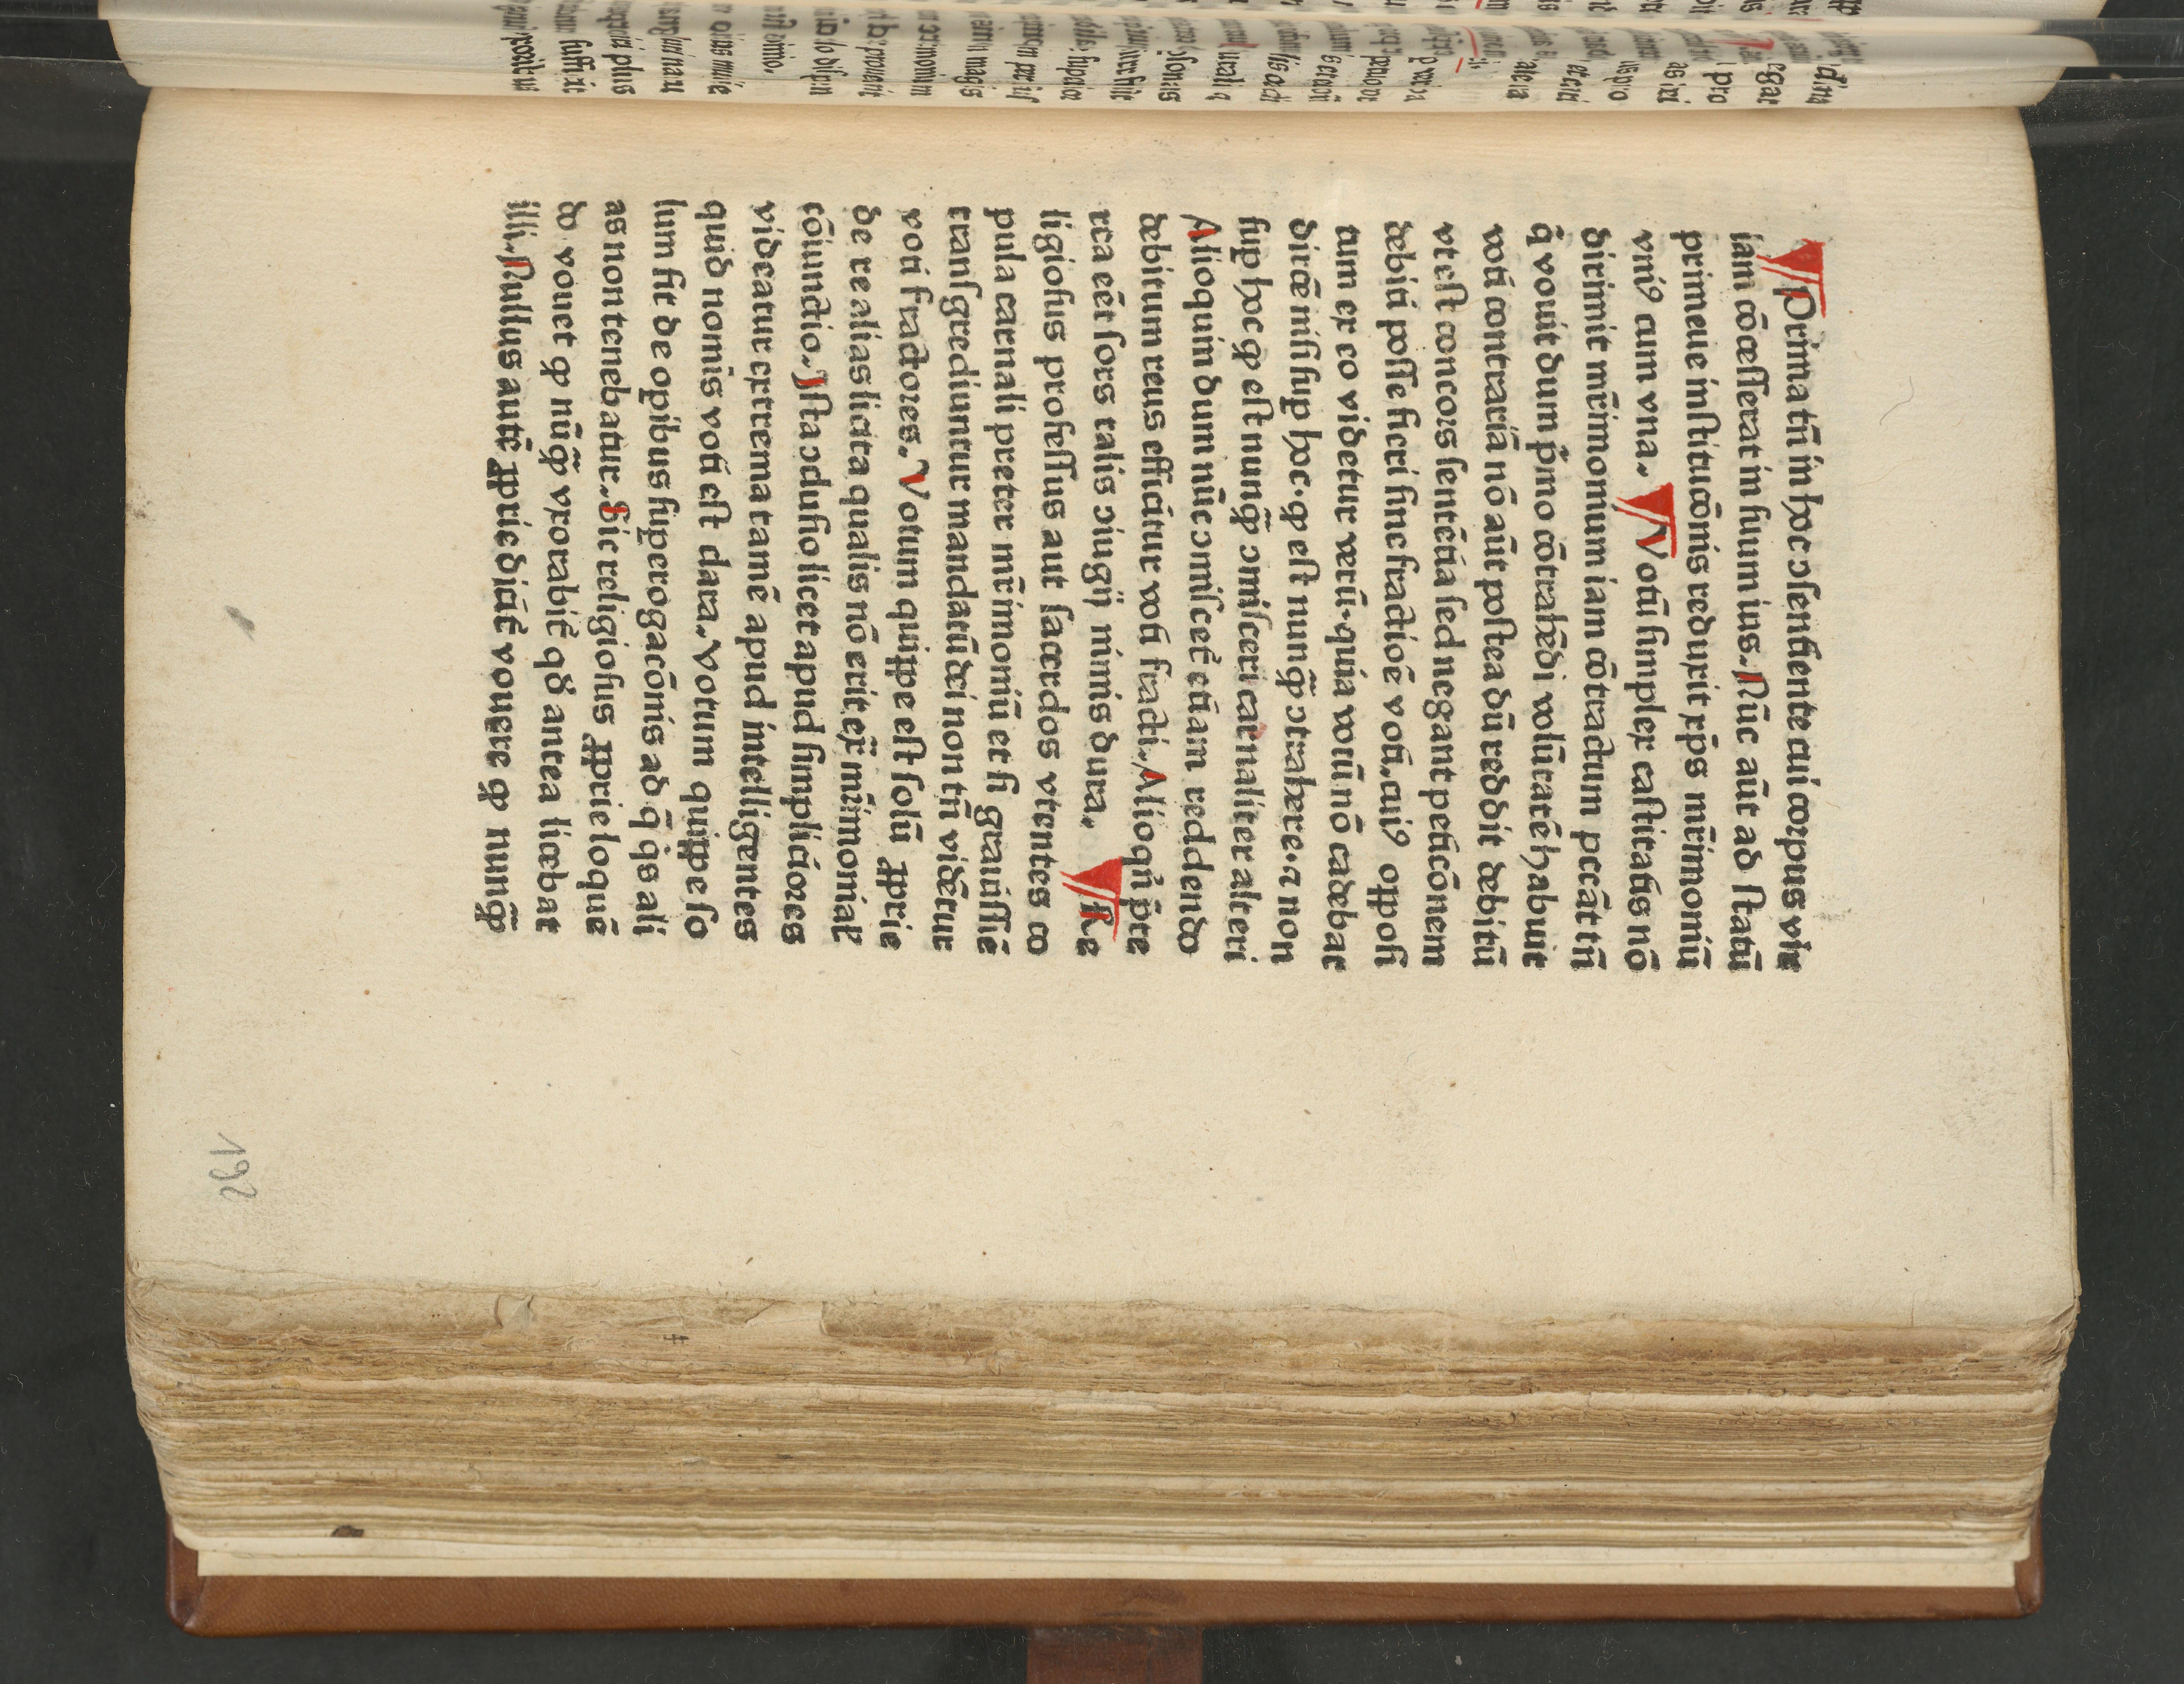 ¶ Primatū in hoc ɔsentiente cui corpus vir
iam cōcesserat in suum ius. Nūc aūt ad statū
primeue institucōnis reduxit xp̄s mr̄imoniū
vniꝰ cum vna. ¶ Votū simplex castitatis nō
dirimit mr̄imonium iam cōtractum peccāt tn̄
q̄ vouit dum p̄mo cōtrahēdi volūtatē habuit
voti contrariā nō aūt postea dū reddit debitū
vt est concors sentētia sed negant peticōnem
debiti posse fieri sine fractiōe voti. cuiꝰ opposi
tum ex eo videtur verū. quia votū nō cadebat
directe nisi sup hoc. ꝙ est nunꝙ̄ ɔtrahere. ⁊ non
sup hoc ꝙ est nunꝙ̄ ɔmisceri carnaliter alteri
Alioquin dum nūc ɔmiscet̄ etiam reddendo
debitum reus efficitur voti fracti. Alioqn̄ p̄te
rea eēt sors talis ɔiugij nimis dura. ¶ Re
ligiosus professus aut sacerdos vtentes co
pula carnali preter mr̄imoniū et si grauissīe
transgrediuntur mandatū dei non tn̄ vidētur
voti fractores. Votum quippe est solū ꝓprie
de re alias licita qualis nō erit ex̄ mr̄imonialꝭ
cōiunctio. Ista ɔclusio licet apud simpliciores
videatur extrema tamē apud intelligentes
quid nominis voti est clara. Votum quippe so
lum fit de opibus supererogacōnis ad q̄ q̇s ali
as non tenebatur. Sic religiosus ꝓprie loquē
do vouet ꝙ nūꝙ̄ vxorabit̄ qđ antea licebat
illi. Nullus autē ꝓprie diceť vouere ꝙ nunꝙ̄
192